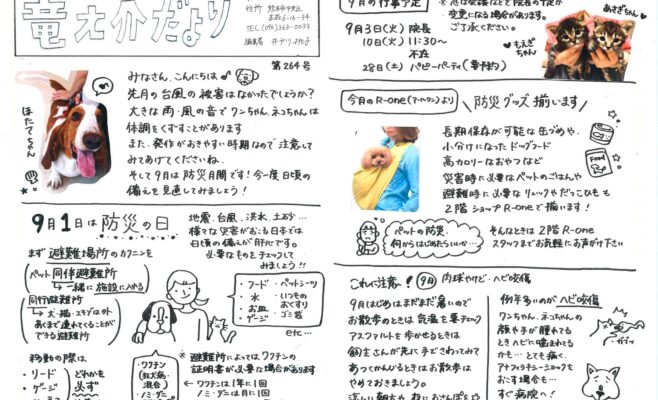 竜之介だより
住所 熊本市中央区
本荘6-16-34
TEL(096)363-0033
第264号
ほたてちゃん
みなさん、こんにちは
先月の台風の被害はなかったでしょうか?
大きな雨・風の音でワンちゃん、ネコちゃんは
体調をくずすことがあります
また、発作がおきやすい時期なので注意して
みてあげてくださいね。
そして9月は防災月間です!今一度日頃の
備えを見直してみましょう!
9月1日は防災の日
地震、台風、洪水、土砂…
様々な災害がおこる日本では
日頃の備えが肝心です。
必要なものをチェックして
みましょう!!
まず避難場所のカクニンを
ペット同伴避難所
→一緒に施設に入れる
同行避難所
→犬・猫・エキゾはOK
あくまで連れてくることが
できる避難所
・フード ・ペットシーツ
・水 ・いつものおくすり
・お皿
・ケージ ・ゴミ袋
etc…
移動の際は、
・リード
・ゲージ
どれかも
必ず
・ワクチン
(狂犬病・
混合)
・ノミ・ダニ
※避難所によってはワクチンの
証明書が必要な場合があります
←ワクチンは1年に1回
ノミ・ダニは月に1回
9月の行事予定
変更になる場合があります。
ご了承ください。
9月3日(火) 院長
10日(火) 11:30〜
不在
28日(土) パピーパーティ(要予約)
あさぎちゃん
もえぎちゃん
今月のR-one(アールワン)より
防災グッズ揃います
長期保存が可能な缶づめや、
小分けになったドッグフード
高カロリーなおやつなど
災害時に必要なペットのごはんや
避難時に必要なリュックやだっこひもも
2階ショップR-oneで揃います!
Food
ペットの防災、
何からはじめたらいいか…
そんなときは2階R-one
スタッフまでお気軽にお声がけ下さい
これに注意!
9月
肉球やけど・ヘビ咬傷
9月はじめはまだまだ暑いので
お散歩のときは気温を要チェック
アスファルトを歩かせるときは
飼主さんが先に手でさわってみて
あつくかんじるときはお散歩は
やめておきましょう。
涼しい朝方や、夜におさんぽを
例年多いのがヘビ咬傷
ワンちゃん、ネコちゃんの
顔や手が腫れてる
ときヘビに噛まれてる
かも…とても痛く、
アナフィラキシーショックを
おこす場合も…
すぐ病院へ!
ガブッ